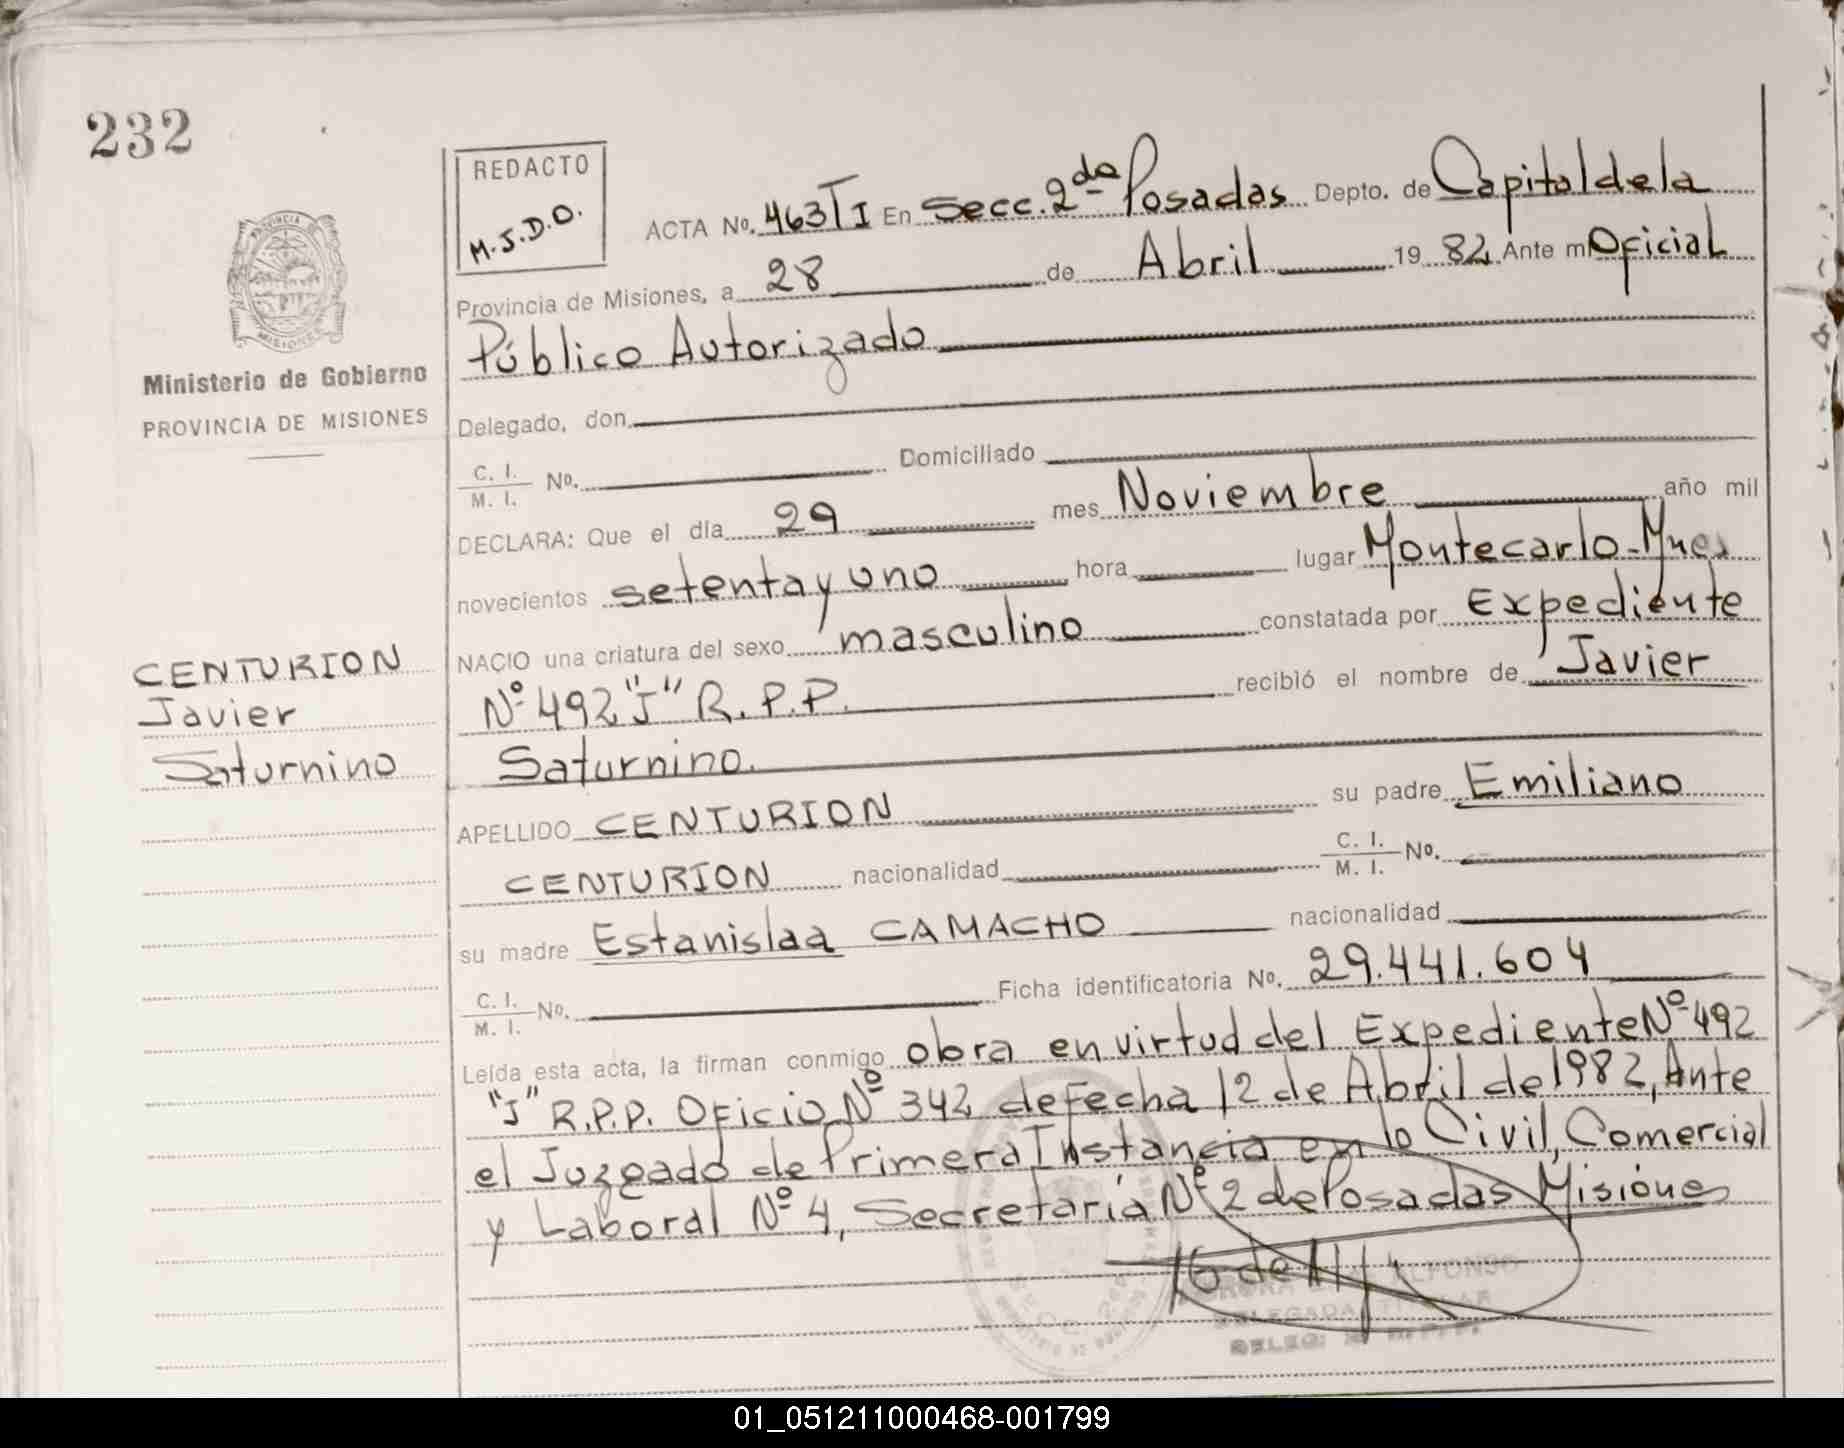 232
REDACTO
M.S.D.O.
PROVINCIA
MISIONES
Ministerio de Gobierno
PROVINCIA DE MISIONES
ACTA No. 463 TI En Secc. 2da Posadas Depto. de Capital de la
Provincia de Misiones, a 28 de Abril 1982 Ante mi Oficial
Público Autorizado
Delegado, don
C. I. / M. I. No. Domiciliado
DECLARA: Que el día 29 mes Noviembre año mil
novecientos setenta y uno hora lugar Montecarlo-Mnes
NACIO una criatura del sexo masculino constatada por Expediente
Nº 492 "J" R.P.P. recibió el nombre de Javier
Saturnino.
CENTURION
Javier
Saturnino
APELLIDO CENTURION su padre Emiliano
CENTURION nacionalidad C. I. / M. I. No.
su madre Estanislaa CAMACHO nacionalidad
C. I. / M. I. No. Ficha identificatoria No. 29.441.604
Leída esta acta, la firman conmigo obra en virtud del Expediente Nº 492
"J" R.P.P. Oficio Nº 342 de Fecha 12 de Abril de 1982, Ante
el Juzgado de Primera Instancia en lo Civil, Comercial
y Laboral Nº 4, Secretaría Nº 2 de Posadas Misiones
ALFONSO
DELEGADA TITULAR
01_051211000468-001799